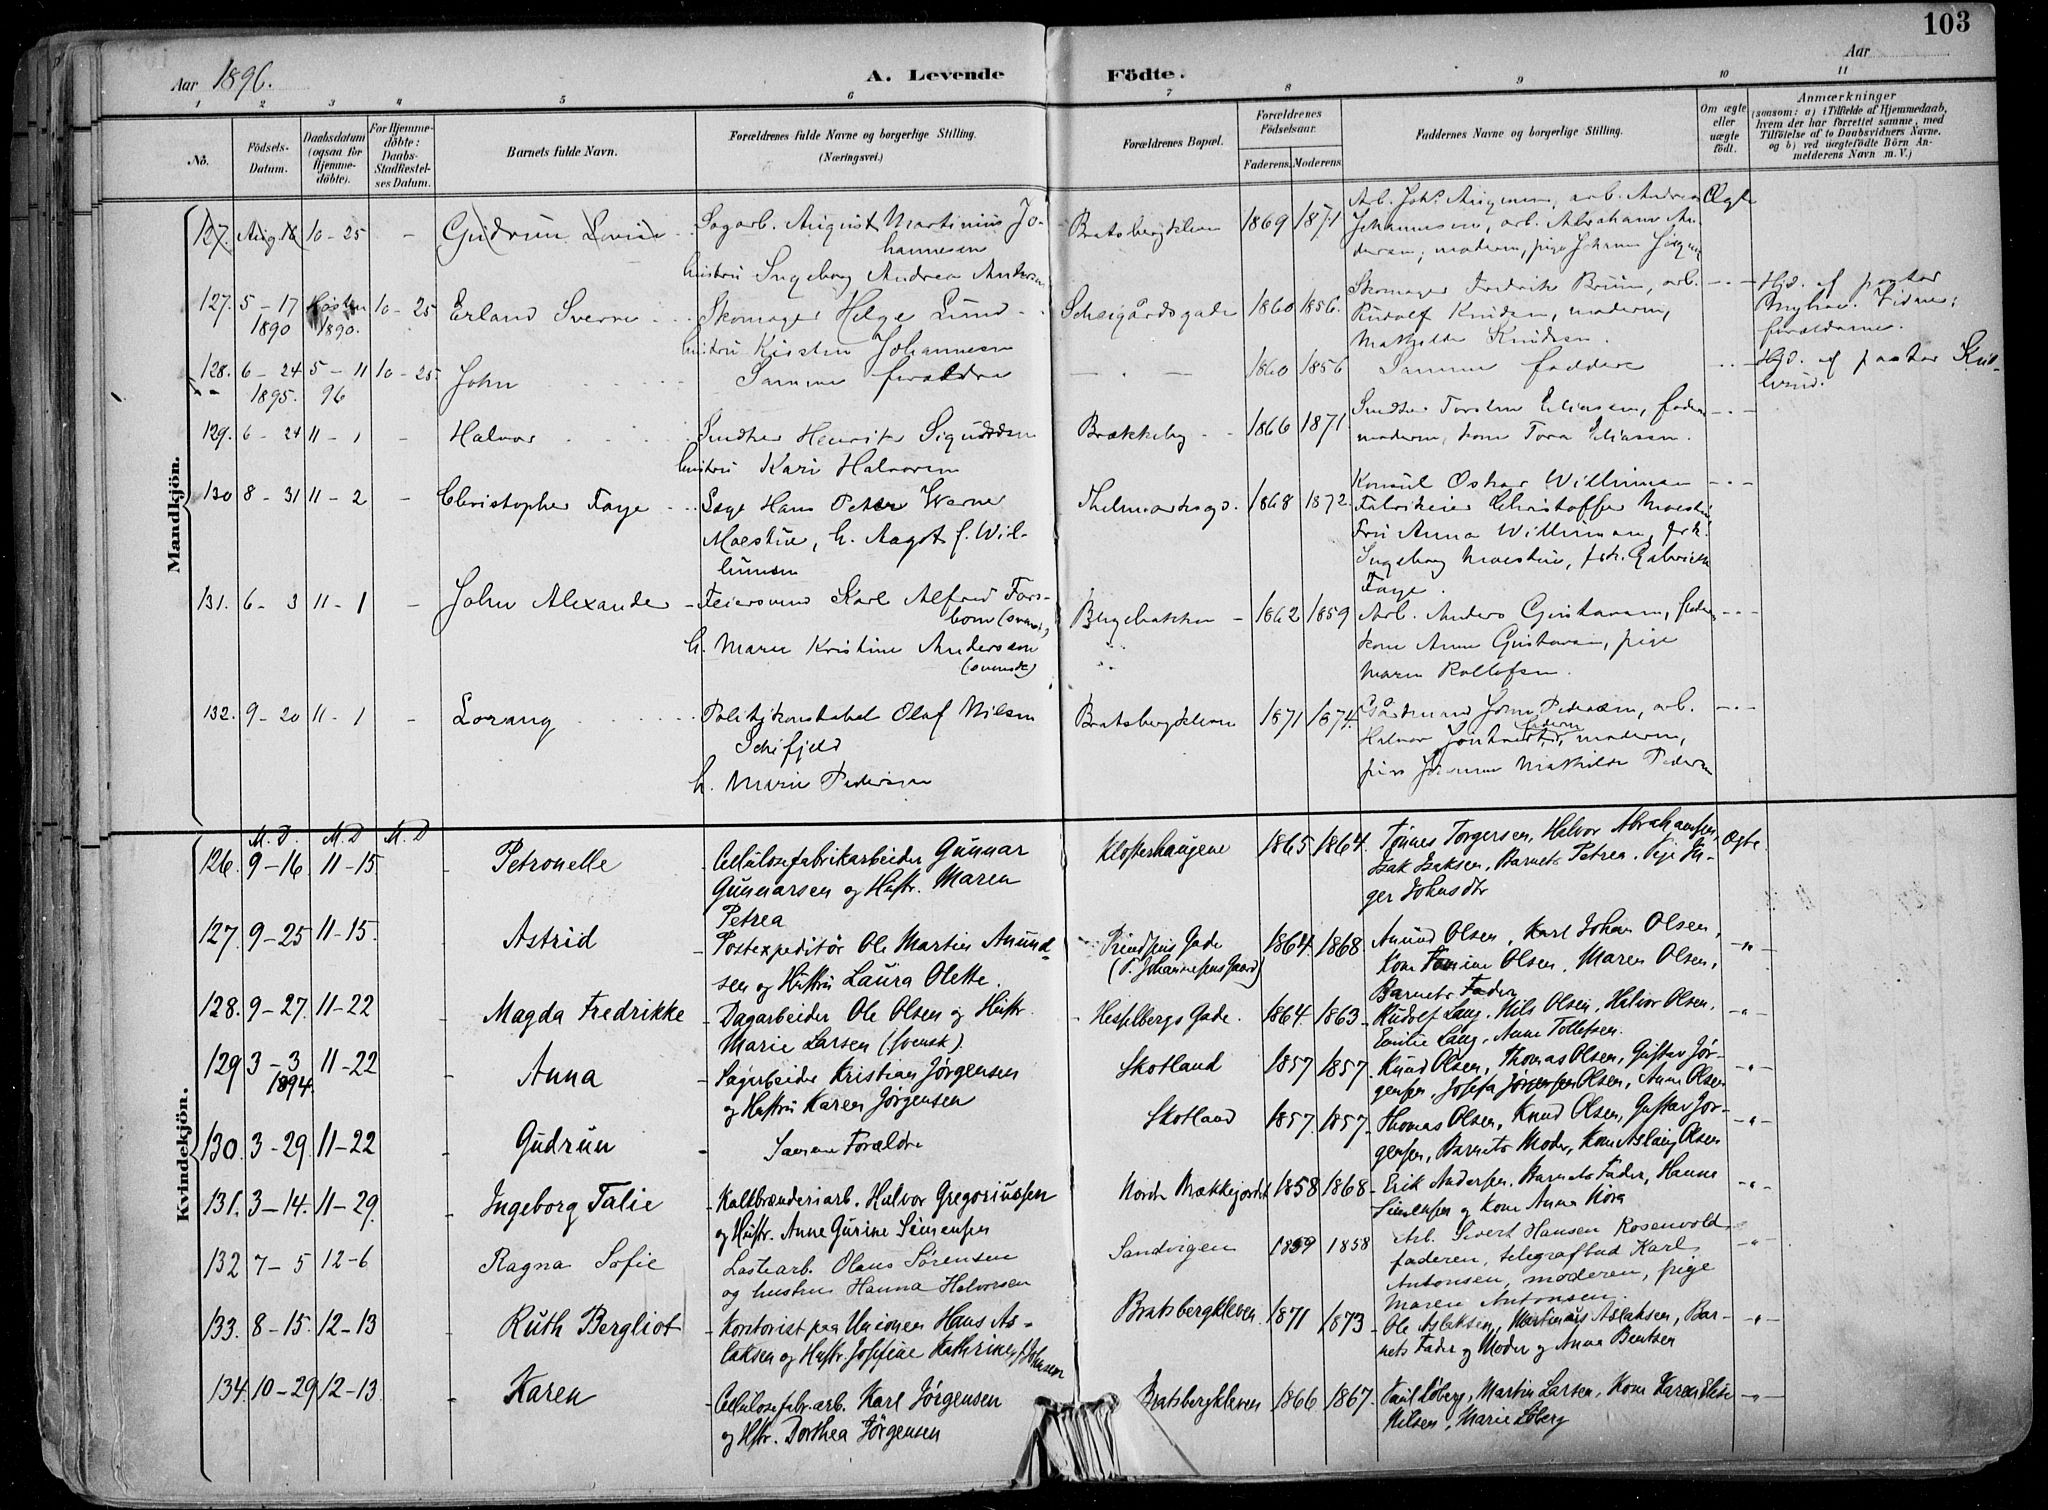 103
Aar 1896.
A. Levende Födte.
Aar
1 2 3 4 5 6 7 8 9 10 11
No.
Födsels-Datum.
Daabsdatum (ogsaa for Hjemme-döbte).
For Hjemme-döbte: Daabs-Stadfæstel-ses Datum.
Barnets fulde Navn.
Forældrenes fulde Navne og borgerlige Stilling.
(Næringsvei.)
Forældrenes Bopæl.
Forældrenes Födselsaar.
Faderens. Moderens.
Faddernes Navne og borgerlige Stilling.
Om ægte eller uægte födt.
Anmærkninger
(saasom: a) i Tilfælde af Hjemmedaab, hvem der har forrettet samme, med Tilföielse af to Daabsvidners Navne. og b) ved uægtefödte Börn An-melderens Navn m. V.)
Mandkjön.
127. Aug 16 10-25 - Gudrun Lovise Sagarb. August Martinius Jo-
hannesen
hustru Ingeborg Andrea Anders
Bratsbergkleven 1869 1871 Arb. Johs Augensen, arb. Andreas
Johannesen, arb. Abraham An-
dersen, moderen, pige Johanne
Ægte
127. 5-17 1890 Høsten 1890. 10-25 Erland Sverre Skomager Helge Lund
hustru Kirsten Johannesen
1860 1856. Skomager Fredrik Bruun, arb.
Rudolf Knudsen, moderen,
Mathilde Knudsen.
-"- Hjd. af pastor
Myhre. Vidner:
forældrene.
128. 6-24 1895. 5-11 96 10-25 John Samme forældre
- " - 1860 1856 Samme faddere -"- Hjd. af pastor
129. 6-24 11-1 - Halvor Smed Henrik Sigurdsen
hustru Kari Halvorsen
Brækkeby 1866 1871 Torsten Eliassen, faderen
moderen, kone Tora Eliassen. -"-
130 8-31 11-2 - Christopher Faye Læge Hans Peter Werner
Moestue, h. Aagot f. Wil-
lumsen
Thelmarksgd. 1868 1872. Konsul Oskar Willumsen
Fabrikeier Christoffer Moestue
Fru Anna Willumsen, frk.
Ingeborg Moestue, frk. Gabrielle
Faye. -"-
131. 6-3 11-1 - John Alexander Feiersvend Karl Alfred Fors-
bom (svensk)
h. Maren Kristine Andersson
(svensk)
Bergebakken 1862 1859 Arb. Anders Gustavsen, faderen
kone Anne Gustavsen, pige
Maren Rollefsen. -"-
132. 9-20 11-1 - Lorang Politikonstabel Olaf Nilsen
Schifjeld
h. Marie Pedersen
Bratsbergkleven 1871 1874. Gårdmand John Pedersen, arb.
Halvor, faderen, moderen,
pige Mathilde Pedersen -"-
Kvindekjön.
M. D. M. D M. D
126. 9-16 11-15 - Petronelle Cellulosefabrikarbeider Gunnar
Gunnarsen og Hustr. Maren
Petrea
Klosterhaugene 1865 1864. Tønnes Torgersen, Halvor Abrahamsen,
Isak Isaksen, Barnets Petrea. Pige In-
ger Johnsdtr
Ægte.
127. 9-25 11-15. - Astrid Postexpeditør Ole Martin Amund-
sen og Hustru Laura Olette.
Gade
(P. Johannesens Gaard)
1864. 1868 Amund Olsen, Karl Johan Olsen,
Kone Tomine Olsen, Maren Olsen,
Barnets Fader -"-
128. 9-27. 11-22 - Magda Fredrikke Dagarbeider Ole Olsen og Hustr.
Marie Larsen (svensk).
Hesselbergs Gade. 1864. 1863 Rudolf Lang, Nils Olsen, Halvor Olsen,
Emilie Lang, Anne Tollefsen. -"-
129 3-3 1894. 11-22 - Anna Sagarbeider Kristian Jørgensen
og Hustru Karen Jørgensen
Skotland 1857 1857. Knud Olsen, Thomas Olsen, Gustav Jør-
gensen, Josefa Olsen, Anne Olsen -"-
130. 3-29. 11-22 - Gudrun Samme Forældre
Skotland 1857. 1857. Thomas Olsen, Knud Olsen, Gustav Jør-
gensen, Barnets Moder, Kone Aslaug Olsen -"-
131. 3-14. 11-29. - Ingeborg Talie Kalkbrænderiarb. Halvor Gregoriussen
og Hustr. Anne Gurine Simensen
Nordre Brækkejordet 1858 1868 Erik Andersen, Barnets Fader, Hanne
Simensen og Kone Anna Kora -"-
132 7-5 12-6 Ragna Sofie Lastearb. Olaus Sørensen
og hustru Hanna Halvorsen
Sandvigen 1859 1858 Arb. Sivert Hansen Rosenvold
faderen, telegrafbud Karl
Antonsen, moderen, pige
Maren Antonsen. -"-
133. 8-15. 12-13 - Ruth Bergliot Kontorist paa Unionen Hans As-
laksen og Hustr. Josefine Kathrine f. Johnsen
Bratsbergkleven 1871 1873 Ole Aslaksen, Martinius Aslaksen, Bar-
nets Fader og Moder og Anna Bentsen -"-
134. 10-29 12-13. - Karen Cellulosefabr.arb. Karl Jørgensen
og Hstr. Dorthea Jørgensen
Bratsbergkleven 1866 1867. Paul Løberg, Martin Larsen, Kone Karen Elise
Nilsen, Marie Løberg -"-